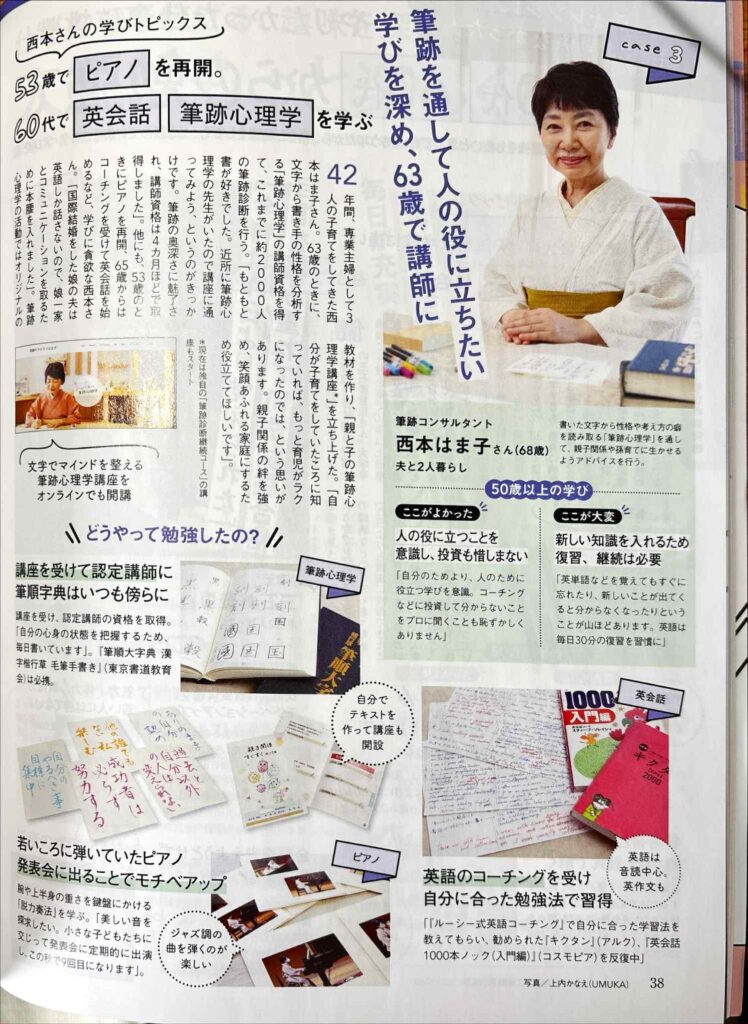 西本さんの学びトピックス
53歳で ピアノ を再開。
60代で 英会話 筆跡心理学 を学ぶ
case 3
筆跡を通して人の役に立ちたい
学びを深め、63歳で講師に
42年間、専業主婦として3
人の子育てをしてきた西
本はま子さん。63歳のときに、
文字から書き手の性格を分析す
る「筆跡心理学」の講師資格を得
て、これまでに約2000人
の筆跡診断を行う。「もともと
書が好きでした。近所に筆跡心
理学の先生がいたので講座に通
ってみよう、というのがきっか
けです。筆跡の奥深さに魅了さ
れ、講師資格は4カ月ほどで取
得しました」。他にも、53歳のと
きにピアノを再開。65歳からは
コーチングを受けて英会話を始
めるなど、学びに貪欲な西本さ
ん。「国際結婚をした娘の夫は
英語しか話さないので、娘一家
とコミュニケーションを取るた
めに本腰を入れました」。筆跡
心理学の活動ではオリジナルの
教材を作り、「親と子の筆跡心
理学講座*」を立ち上げた。「自
分が子育てをしていたころに知
っていれば、もっと育児がラク
になったのでは、という思いが
あります。親子関係の絆を強
め、笑顔あふれる家庭にするた
め役立ててほしいです」。
*現在は独自の「筆跡診断継続コース」の講
座もスタート
文字でマインドを整える
筆跡心理学講座を
オンラインでも開講
筆跡コンサルタント
西本はま子さん(68歳)
夫と2人暮らし
書いた文字から性格や考え方の癖
を読み取る「筆跡心理学」を通し
て、親子関係や孫育てに生かせる
ようアドバイスを行う。
50歳以上の学び
ここがよかった
人の役に立つことを
意識し、投資も惜しまない
「自分のためより、人のために
役立つ学びを意識。コーチング
などに投資して分からないこと
をプロに聞くことも恥ずかしく
ありません」
ここが大変
新しい知識を入れるため
復習、継続は必要
「英単語などを覚えてもすぐに
忘れたり、新しいことが出てく
ると分からなくなったりという
ことが山ほどあります。英語は
毎日30分の復習を習慣に」
どうやって勉強したの?
講座を受けて認定講師に
筆順字典はいつも傍らに
講座を受け、認定講師の資格を取得。
「自分の心身の状態を把握するため、
毎日書いています」。『筆順大字典 漢
字楷行草 毛筆手書き』(東京書道教育
会)は必携。
筆跡心理学
筆順大字
自分で
テキストを
作って講座も
開設
親子関係
すくすくカルテ
成功者は
必らず
努力する
英会話
1000
入門編
キクタン
2000
英語は
音読中心。
英作文も
若いころに弾いていたピアノ
発表会に出ることでモチベアップ
腕や上半身の重さを鍵盤にかける
「脱力奏法」を学ぶ。「美しい音を
探求したい。小さな子どもたちに
交じって発表会に定期的に出演
し、この秋で9回目になります」。
ピアノ
ジャズ調の
曲を弾くのが
楽しい
英語のコーチングを受け
自分に合った勉強法で習得
「『ルーシー式英語コーチング』で自分に合った学習法を
教えてもらい、勧められた『キクタン』(アルク)、『英会話
1000本ノック〈入門編〉』(コスモピア)を反復中」
写真/上内かなえ(UMUKA)
38